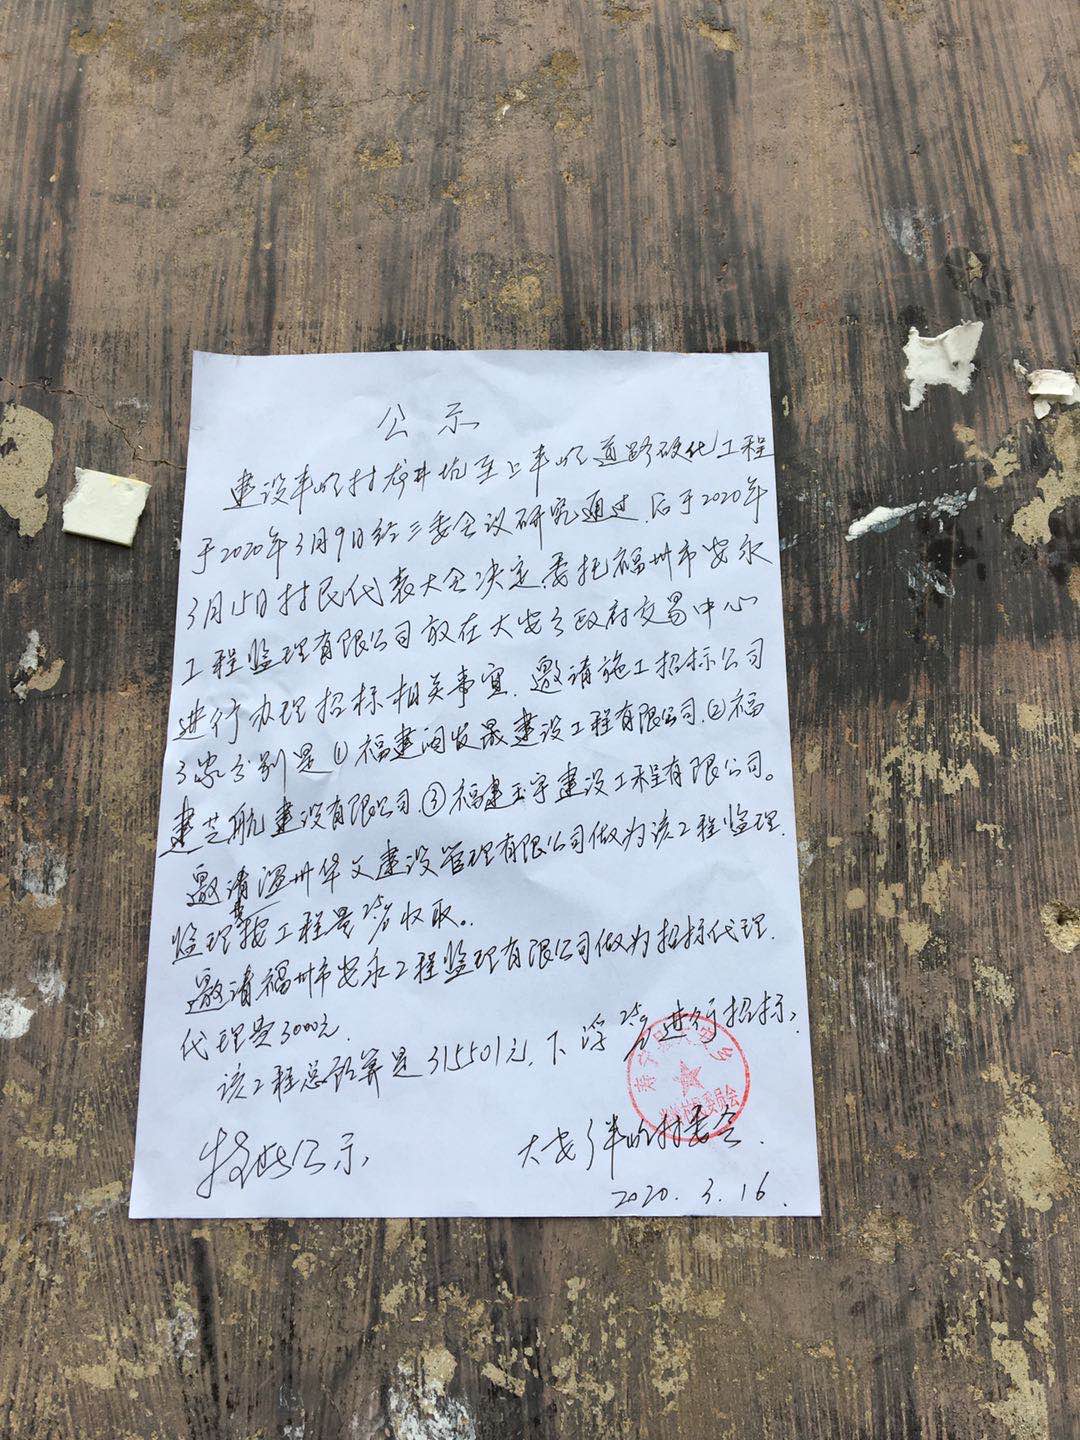 公示
建设半岭村龙井坑至上半岭道路硬化工程
于2020年3月9日经三委会议研究通过.后于2020年
3月15日村民代表大会决定.委托福州市安永
工程监理有限公司放在大安乡政府交易中心
进行办理招标相关事宜.邀请施工招标公司
3家分别是①福建闽发晟建设工程有限公司.②福
建芝航建设有限公司.③福建玉宇建设工程有限公司。
邀请温州华文建设管理有限公司做为该工程监理.
监理费按工程量 收取。
邀请福州市安永工程监理有限公司做为招标代理.
代理费3000元.
该工程总预算是315501元.下浮 进行招标.
特此公示
大安乡半岭村委会.
2020.3.16.